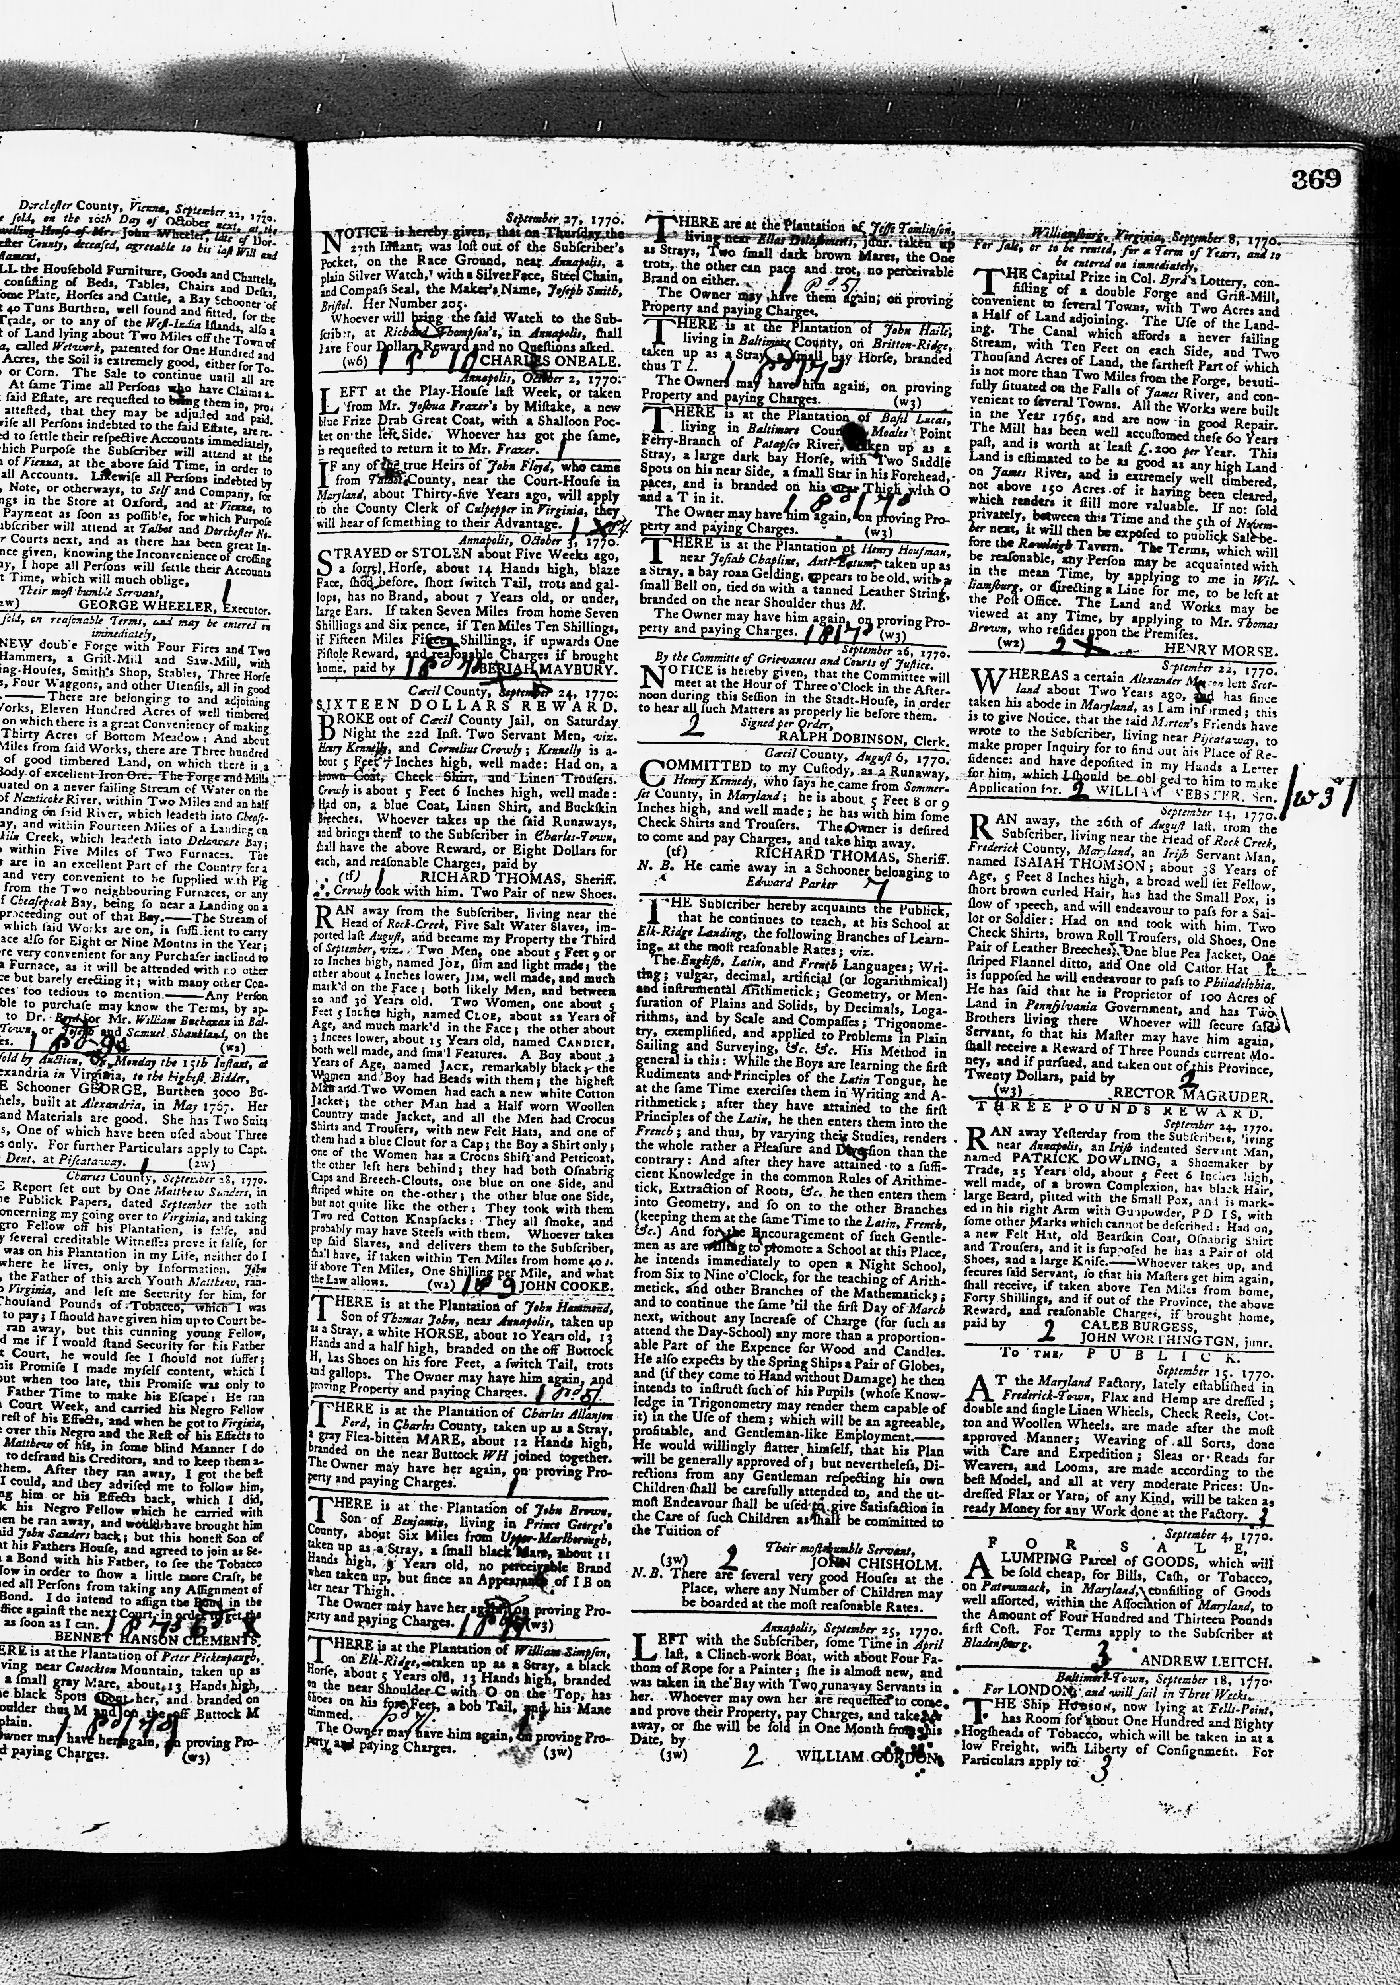 369
Dorchester County, Vienna, September 22, 1770.
sold, on the 10th Day of October next, at the
welling-House of Mr. John Wheeler, late of Dor-
ster County, deceased, agreeable to his last Will and
LL the Household Furniture, Goods and Chattels,
consisting of Beds, Tables, Chairs and Desks,
ome Plate, Horses and Cattle, a Bay Schooner of
40 Tuns Burthen, well found and fitted, for the
Trade, or to any of the West-India Islands, also a
of Land lying about Two Miles off the Town of
a, called Wetwork, patented for One Hundred and
Acres, the Soil is extremely good, either for To-
or Corn. The Sale to continue until all are
At same Time all Persons who have Claims a-
said Estate, are requested to bring them in, pro-
attested, that they may be adjusted and paid.
wise all Persons indebted to the said Estate, are re-
ed to settle their respective Accounts immediately,
which Purpose the Subscriber will attend at the
of Vienna, at the above said Time, in order to
all Accounts. Likewise all Persons indebted by
Note, or otherways, to Self and Company, for
ngs in the Store at Oxford, and at Vienna, to
Payment as soon as possible, for which Purpose
ubscriber will attend at Talbot and Dorchester No-
r Courts next, and as there has been great In-
nce given, knowing the Inconvenience of crossing
ay, I hope all Persons will settle their Accounts
t Time, which will much oblige,
Their most humble Servant,
GEORGE WHEELER, Executor.
sold, on reasonable Terms, and may be entered on
immediately,
NEW double Forge with Four Fires and Two
Hammers, a Grist-Mill and Saw-Mill, with
ing-Houses, Smith's Shop, Stables, Three Horse
s, Four Waggons, and other Utensils, all in good
There are belonging to and adjoining
Works, Eleven Hundred Acres of well timbered
on which there is a great Conveniency of making
Thirty Acres of Bottom Meadow; And about
Miles from said Works, there are Three hundred
of good timbered Land, on which there is a
Body of excellent Iron Ore. The Forge and Mills
uated on a never failing Stream of Water on the
of Nanticoke River, within Two Miles and an half
anding on said River, which leadeth into Chesa-
ay, and within Fourteen Miles of a Landing on
kiln Creek, which leadeth into Delaware Bay;
within Five Miles of Two Furnaces. The
s are in an excellent Part of the Country for a
and very convenient to be supplied with Pig
from the Two neighbouring Furnaces, or any
f Chesapeak Bay, being so near a Landing on a
proceeding out of that Bay.—The Stream of
which said Works are on, is sufficient to carry
ace also for Eight or Nine Months in the Year;
re very convenient for any Purchaser inclined to
a Furnace, as it will be attended with no other
ce but barely erecting it; with many other Con-
ces too tedious to mention.—Any Person
ble to purchase may know the Terms, by ap-
to Dr. Boyd or Mr. William Buchanan in Bal-
Town, or Joseph and Samuel Shankland, on the
es. (w2)
sold by Auction, on Monday the 15th Instant, at
exandria in Virginia, to the highest Bidder,
E Schooner GEORGE, Burthen 3000 Bu-
hels, built at Alexandria, in May 1767. Her
and Materials are good. She has Two Suits
s, One of which have been used about Three
s only. For further Particulars apply to Capt.
Dent, at Piscataway. 1 (2w)
Charles County, September 28, 1770.
E Report set out by One Matthew Sanders, in
he Publick Papers, dated September the 20th
oncerning my going over to Virginia, and taking
gro Fellow off his Plantation, is false, and
y several creditable Witnesses prove it false, for
was on his Plantation in my Life, neither do I
where he lives, only by Information. John
, the Father of this arch Youth Matthew, ran-
Virginia, and left me Security for him, for
housand Pounds of Tobacco, which I was
to pay; I should have given him up to Court be-
ran away, but this cunning young Fellow,
d me if I would stand Security for his Father
Court, he would see I should not suffer;
his Promise I made myself content, which I
out when too late, this Promise was only to
Father Time to make his Escape: He ran
Court Week, and carried his Negro Fellow
rest of his Effects, and when he got to Virginia,
over this Negro and the Rest of his Effects to
Matthew of his, in some blind Manner I do
to defraud his Creditors, and to keep them a-
them. After they ran away, I got the best
I could, and they advised me to follow him,
ng him or his Effects back, which I did,
k his Negro Fellow which he carried with
en he ran away, and would have brought him
aid John Sanders back; but this honest Son of
at his Fathers House, and agreed to join as Se-
a Bond with his Father, to see the Tobacco
Now in order to show a little more Craft, he
ned all Persons from taking any Assignment of
Bond. I do intend to assign the Bond in the
ffice against the next Court, in order to get the
as soon as I can.
BENNET HANSON CLEMENTS.
ERE is at the Plantation of Peter Pickenpaugh,
ving near Cotockton Mountain, taken up as
a small gray Mare, about 13 Hands high,
e black Spots about her, and branded on
oulder thus M and on the off Buttock M
plain.
Owner may have her again, on proving Pro-
d paying Charges. (w3)
September 27, 1770.
NOTICE is hereby given, that on Thursday the
27th Instant, was lost out of the Subscriber's
Pocket, on the Race Ground, near Annapolis, a
plain Silver Watch, with a Silver Face, Steel Chain,
and Compass Seal, the Maker's Name, Joseph Smith,
Bristol. Her Number 205.
Whoever will bring the said Watch to the Sub-
scriber, at Richard Thompson's, in Annapolis, shall
have Four Dollars Reward and no Questions asked.
(w6) CHARLES ONEALE.
Annapolis, October 2, 1770.
LEFT at the Play-House last Week, or taken
from Mr. Joshua Frazer's by Mistake, a new
blue Frize Drab Great Coat, with a Shalloon Poc-
ket on the left Side. Whoever has got the same,
is requested to return it to Mr. Frazer. 1
IF any of the true Heirs of John Floyd, who came
from Talbot County, near the Court-House in
Maryland, about Thirty-five Years ago, will apply
to the County Clerk of Culpepper in Virginia, they
will hear of something to their Advantage.
Annapolis, October 3, 1770.
STRAYED or STOLEN about Five Weeks ago,
a sorrel Horse, about 14 Hands high, blaze
Face, shod before, short switch Tail, trots and gal-
lops, has no Brand, about 7 Years old, or under,
large Ears. If taken Seven Miles from home Seven
Shillings and Six pence, if Ten Miles Ten Shillings,
if Fifteen Miles Fifteen Shillings, if upwards One
Pistole Reward, and reasonable Charges if brought
home, paid by BERIAH MAYBURY.
Cæcil County, September 24, 1770.
SIXTEEN DOLLARS REWARD.
BROKE out of Cæcil County Jail, on Saturday
Night the 22d Inst. Two Servant Men, viz.
Henry Kennelly, and Cornelius Crowly; Kennelly is a-
bout 5 Feet 7 Inches high, well made: Had on, a
brown Coat, Check Shirt, and Linen Trousers.
Crowly is about 5 Feet 6 Inches high, well made:
Had on, a blue Coat, Linen Shirt, and Buckskin
Breeches. Whoever takes up the said Runaways,
and brings them to the Subscriber in Charles-Town,
shall have the above Reward, or Eight Dollars for
each, and reasonable Charges, paid by
(tf) 1 RICHARD THOMAS, Sheriff.
⁂ Crowly took with him. Two Pair of new Shoes.
RAN away from the Subscriber, living near the
Head of Rock-Creek, Five Salt Water Slaves, im-
ported last August, and became my Property the Third
of September, viz. Two Men, one about 5 Feet 9 or
10 Inches high, named JOE, slim and light made; the
other about 4 Inches lower, JIM, well made, and much
mark'd on the Face; both likely Men, and between
20 and 30 Years old. Two Women, one about 5
Feet 5 Inches high, named CLOE, about 22 Years of
Age, and much mark'd in the Face; the other about
3 Inches lower, about 15 Years old, named CANDICE,
both well made, and small Features. A Boy about 2
Years of Age, named JACK, remarkably black; the
Women and Boy had Beads with them; the highest
Man and Two Women had each a new white Cotton
Jacket; the other Man had a Half worn Woollen
Country made Jacket, and all the Men had Crocus
Shirts and Trousers, with new Felt Hats, and one of
them had a blue Clout for a Cap; the Boy a Shirt only;
one of the Women has a Crocus Shift and Petticoat,
the other left hers behind; they had both Osnabrig
Caps and Breech-Clouts, one blue on one Side, and
striped white on the other; the other blue one Side,
but not quite like the other: They took with them
Two red Cotton Knapsacks: They all smoke, and
probably may have Steels with them. Whoever takes
up said Slaves, and delivers them to the Subscriber,
shall have, if taken within Ten Miles from home 40s.
if above Ten Miles, One Shilling per Mile, and what
the Law allows. (w2) JOHN COOKE.
THERE is at the Plantation of John Hammond,
Son of Thomas John, near Annapolis, taken up
as a Stray, a white HORSE, about 10 Years old, 13
Hands and a half high, branded on the off Buttock
H, has Shoes on his fore Feet, a switch Tail, trots
and gallops. The Owner may have him again, and
proving Property and paying Charges.
THERE is at the Plantation of Charles Allanson
Ford, in Charles County, taken up as a Stray,
a gray Flea-bitten MARE, about 12 Hands high,
branded on the near Buttock WH joined together.
The Owner may have her again, on proving Pro-
perty and paying Charges. 1
THERE is at the Plantation of John Brown,
Son of Benjamin, living in Prince George's
County, about Six Miles from Upper-Marlborough,
taken up as a Stray, a small black Mare, about 11
Hands high, 3 Years old, no perceivable Brand
when taken up, but since an Appearance of I B on
her near Thigh.
The Owner may have her again, on proving Pro-
perty and paying Charges. (w3)
THERE is at the Plantation of William Simpson,
on Elk-Ridge, taken up as a Stray, a black
Horse, about 5 Years old, 13 Hands high, branded
on the near Shoulder C with O on the Top, has
Shoes on his fore Feet, a bob Tail, and his Mane
trimmed.
The Owner may have him again, on proving Pro-
perty and paying Charges. (3w)
THERE are at the Plantation of Jesse Tomlinson,
living near Ellas Delashmuts, junr. taken up
as Strays, Two small dark brown Mares, the One
trots, the other can pace and trot, no perceivable
Brand on either.
The Owner may have them again, on proving
Property and paying Charges.
THERE is at the Plantation of John Haile,
living in Baltimore County, on Britton-Ridge,
taken up as a Stray, a small bay Horse, branded
thus T L.
The Owner may have him again, on proving
Property and paying Charges. (w3)
THERE is at the Plantation of Basil Lucas,
living in Baltimore County, Moales Point
Ferry-Branch of Patapsco River, taken up as a
Stray, a large dark bay Horse, with Two Saddle
Spots on his near Side, a small Star in his Forehead,
paces, and is branded on his near Thigh with O
and a T in it.
The Owner may have him again, on proving Pro-
perty and paying Charges. (w3)
THERE is at the Plantation of Henry Housman,
near Josiah Chapline, Ant-Eatum, taken up as
a Stray, a bay roan Gelding, appears to be old, with a
small Bell on, tied on with a tanned Leather String,
branded on the near Shoulder thus M.
The Owner may have him again, on proving Pro-
perty and paying Charges. (w3)
September 26, 1770.
By the Committee of Grievances and Courts of Justice.
NOTICE is hereby given, that the Committee will
meet at the Hour of Three o'Clock in the After-
noon during this Session in the Stadt-House, in order
to hear all such Matters as properly lie before them.
2 Signed per Order,
RALPH DOBINSON, Clerk.
Cæcil County, August 6, 1770.
COMMITTED to my Custody, as a Runaway,
Henry Kennedy, who says he came from Sommer-
set County, in Maryland; he is about 5 Feet 8 or 9
Inches high, and well made; he has with him some
Check Shirts and Trousers. The Owner is desired
to come and pay Charges, and take him away.
(tf) RICHARD THOMAS, Sheriff.
N. B. He came away in a Schooner belonging to
Edward Parker 7
THE Subscriber hereby acquaints the Publick,
that he continues to teach, at his School at
Elk-Ridge Landing, the following Branches of Learn-
ing, at the most reasonable Rates; viz.
The English, Latin, and French Languages; Wri-
ting; vulgar, decimal, artificial (or logarithmical)
and instrumental Arithmetick; Geometry, or Men-
suration of Plains and Solids, by Decimals, Loga-
rithms, and by Scale and Compasses; Trigonome-
try, exemplified, and applied to Problems in Plain
Sailing and Surveying, &c. &c. His Method in
general is this: While the Boys are learning the first
Rudiments and Principles of the Latin Tongue, he
at the same Time exercises them in Writing and A-
rithmetick; after they have attained to the first
Principles of the Latin, he then enters them into the
French; and thus, by varying their Studies, renders
the whole rather a Pleasure and Diversion than the
contrary: And after they have attained to a suffi-
cient Knowledge in the common Rules of Arithme-
tick, Extraction of Roots, &c. he then enters them
into Geometry, and so on to the other Branches
(keeping them at the same Time to the Latin, French,
&c.) And for the Encouragement of such Gentle-
men as are willing to promote a School at this Place,
he intends immediately to open a Night School,
from Six to Nine o'Clock, for the teaching of Arith-
metick, and other Branches of the Mathematicks;
and to continue the same 'til the first Day of March
next, without any Increase of Charge (for such as
attend the Day-School) any more than a proportion-
able Part of the Expence for Wood and Candles.
He also expects by the Spring Ships a Pair of Globes,
and (if they come to Hand without Damage) he then
intends to instruct such of his Pupils (whose Know-
ledge in Trigonometry may render them capable of
it) in the Use of them; which will be an agreeable,
profitable, and Gentleman-like Employment.—
He would willingly flatter himself, that his Plan
will be generally approved of; but nevertheless, Di-
rections from any Gentleman respecting his own
Children shall be carefully attended to, and the ut-
most Endeavour shall be used to give Satisfaction in
the Care of such Children as shall be committed to
the Tuition of
Their most humble Servant,
(3w) 2 JOHN CHISHOLM.
N. B. There are several very good Houses at the
Place, where any Number of Children may
be boarded at the most reasonable Rates.
Annapolis, September 25, 1770.
LEFT with the Subscriber, some Time in April
last, a Clinch-work Boat, with about Four Fa-
thom of Rope for a Painter; she is almost new, and
was taken in the Bay with Two runaway Servants in
her. Whoever may own her are requested to come,
and prove their Property, pay Charges, and take her
away, or she will be sold in One Month from this
Date, by
(3w) 2 WILLIAM GORDON.
Williamsburg, Virginia, September 8, 1770.
For Sale, or to be rented, for a Term of Years, and to
be entered on immediately,
THE Capital Prize in Col. Byrd's Lottery, con-
sisting of a double Forge and Grist-Mill,
convenient to several Towns, with Two Acres and
a Half of Land adjoining. The Use of the Land-
ing. The Canal which affords a never failing
Stream, with Ten Feet on each Side, and Two
Thousand Acres of Land, the farthest Part of which
is not more than Two Miles from the Forge, beauti-
fully situated on the Falls of James River, and con-
venient to several Towns. All the Works were built
in the Year 1765, and are now in good Repair.
The Mill has been well accustomed these 60 Years
past, and is worth at least £.200 per Year. This
Land is estimated to be as good as any high Land
on James River, and is extremely well timbered,
not above 150 Acres of it having been cleared,
which renders it still more valuable. If not sold
privately, between this Time and the 5th of Novem-
ber next, it will then be exposed to publick Sale be-
fore the Rawleigh Tavern. The Terms, which will
be reasonable, any Person may be acquainted with
in the mean Time, by applying to me in Wil-
liamsburg, or directing a Line for me, to be left at
the Post Office. The Land and Works may be
viewed at any Time, by applying to Mr. Thomas
Brown, who resides upon the Premises.
(w2) 2 HENRY MORSE.
September 22, 1770.
WHEREAS a certain Alexander Morton left Scot-
land about Two Years ago, and has since
taken his abode in Maryland, as I am informed; this
is to give Notice, that the said Morton's Friends have
wrote to the Subscriber, living near Piscataway, to
make proper Inquiry for to find out his Place of Re-
sidence: and have deposited in my Hands a Letter
for him, which I should be obliged to him to make
Application for. 2 WILLIAM WEBSTER, Sen.
w3
September 14, 1770.
RAN away, the 26th of August last, from the
Subscriber, living near the Head of Rock Creek,
Frederick County, Maryland, an Irish Servant Man,
named ISAIAH THOMSON; about 38 Years of
Age, 5 Feet 8 Inches high, a broad well set Fellow,
short brown curled Hair, has had the Small Pox, is
slow of speech, and will endeavour to pass for a Sai-
lor or Soldier: Had on and took with him, Two
Check Shirts, brown Roll Trousers, old Shoes, One
Pair of Leather Breeches, One blue Pea Jacket, One
striped Flannel ditto, and One old Castor Hat
is supposed he will endeavour to pass to Philadelphia.
He has said that he is Proprietor of 100 Acres of
Land in Pennsylvania Government, and has Two
Brothers living there Whoever will secure said
Servant, so that his Master may have him again,
shall receive a Reward of Three Pounds current Mo-
ney, and if pursued, and taken out of this Province,
Twenty Dollars, paid by 2
(w3) RECTOR MAGRUDER.
THREE POUNDS REWARD.
September 24, 1770.
RAN away Yesterday from the Subscribers, living
near Annapolis, an Irish indented Servant Man,
named PATRICK DOWLING, a Shoemaker by
Trade, 25 Years old, about 5 Feet 6 Inches high,
well made, of a brown Complexion, has black Hair,
large Beard, pitted with the Small Pox, and is mark-
ed in his right Arm with Gunpowder, P D I S, with
some other Marks which cannot be described: Had on,
a new Felt Hat, old Bearskin Coat, Osnabrig Shirt
and Trousers, and it is supposed he has a Pair of old
Shoes, and a large Knife.—Whoever takes up, and
secures said Servant, so that his Masters get him again,
shall receive, if taken above Ten Miles from home,
Forty Shillings, and if out of the Province, the above
Reward, and reasonable Charges, if brought home,
paid by CALEB BURGESS,
2 JOHN WORTHINGTON, junr.
To THE PUBLICK.
September 15, 1770.
AT the Maryland Factory, lately established in
Frederick-Town, Flax and Hemp are dressed;
double and single Linen Wheels, Check Reels, Cot-
ton and Woollen Wheels, are made after the most
approved Manner; Weaving of all Sorts, done
with Care and Expedition; Sleas or Reads for
Weavers, and Looms, are made according to the
best Model, and all at very moderate Prices: Un-
dressed Flax or Yarn, of any Kind, will be taken as
ready Money for any Work done at the Factory. 3
September 4, 1770.
FOR SALE,
A LUMPING Parcel of GOODS, which will
be sold cheap, for Bills, Cash, or Tobacco,
on Patowmack, in Maryland, consisting of Goods
well assorted, within the Association of Maryland, to
the Amount of Four Hundred and Thirteen Pounds
first Cost. For Terms apply to the Subscriber at
Bladensburg.
3 ANDREW LEITCH.
Baltimore-Town, September 18, 1770.
For LONDON, and will sail in Three Weeks,
THE Ship Hudson, now lying at Fells-Point,
has Room for about One Hundred and Eighty
Hogsheads of Tobacco, which will be taken in at a
low Freight, with Liberty of Consignment. For
Particulars apply to 3